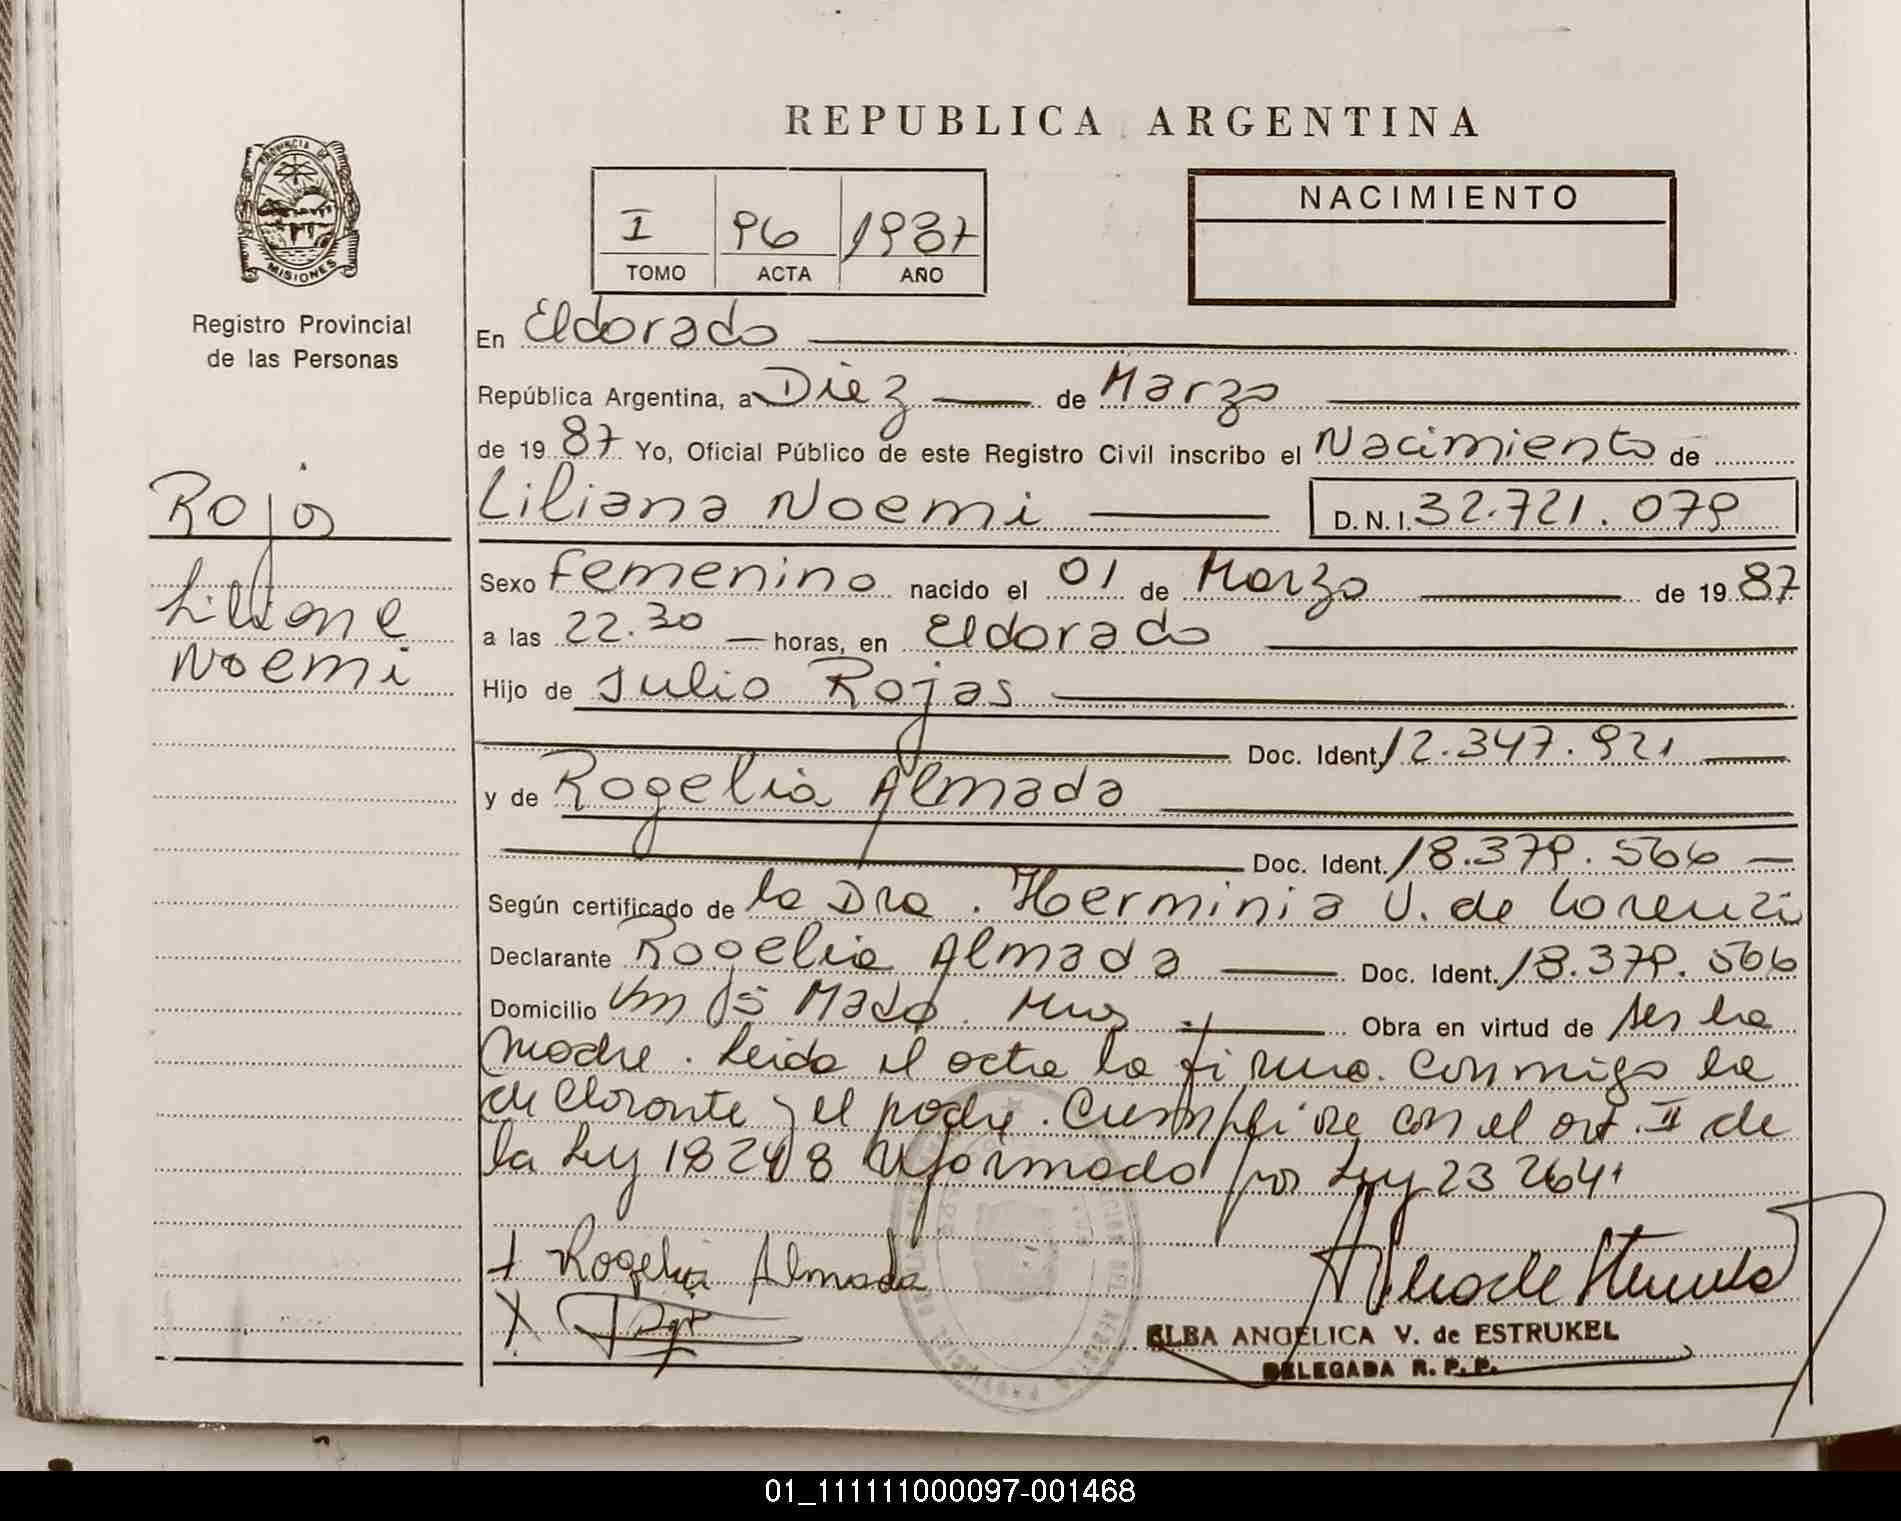 REPUBLICA ARGENTINA
PROVINCIA DE
MISIONES
Registro Provincial
de las Personas
I 96 1987
TOMO ACTA AÑO
NACIMIENTO
En Eldorado
República Argentina, a Diez de Marzo
de 1987 Yo, Oficial Público de este Registro Civil inscribo el Nacimiento de
Rojas
Liliana Noemi D.N.I. 32.721.079
Sexo femenino nacido el 01 de Marzo de 1987
Liliana
a las 22.30 horas, en Eldorado
Noemi
Hijo de Julio Rojas
Doc. Ident. 12.347.921
y de Rogelia Almada
Doc. Ident. 18.379.566
Según certificado de la Dra. Herminia V. de Lorenzi
Declarante Rogelia Almada Doc. Ident. 18.379.566
Domicilio Km 15 Mado. Mnes. Obra en virtud de ser la
madre. Leida el acta la firma conmigo la
declarante y el padre. Cumplire con el art. II de
la Ley 18248 reformado por Ley 23264.
Rogelia Almada
ELBA ANGELICA V. de ESTRUKEL
DELEGADA R. P. P.
01_111111000097-001468